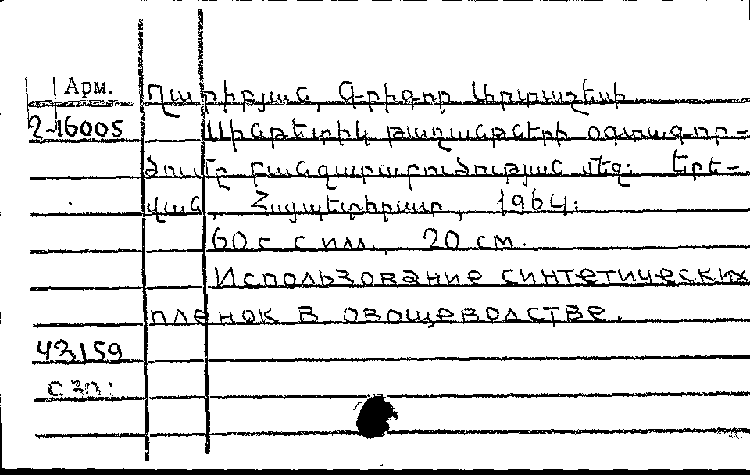 Арм.
Ղարիբյան, Գրիգոր Արտաշեսի
2-16005
Սինթետիկ թաղանթների օգտագոր-
ծումը բանջարաբուծության մեջ: Երե-
վան, Հայպետհրատ, 1964:
60 с. с илл., 20 см.
Использование синтетических
пленок в овощеводстве.
43159